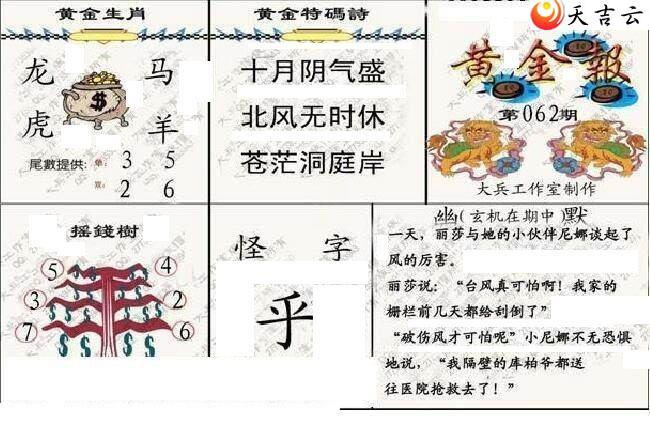 黄金生肖
龙
马
$
虎
羊
尾數提供: 单: 3 5
双: 2 6
黄金特碼詩
十月阴气盛
北风无时休
苍茫洞庭岸
天吉云
黄金報
第062期
大兵工作室制作
摇錢樹
5
4
3
2
7
6
怪 字
乎
幽(玄机在期中)默
一天，丽莎与她的小伙伴尼娜谈起了
风的厉害。
丽莎说：“台风真可怕啊！我家的
栅栏前几天都给刮倒了”
“破伤风才可怕呢”小尼娜不无恐惧
地说，“我隔壁的库柏爷都送
往医院抢救去了！”